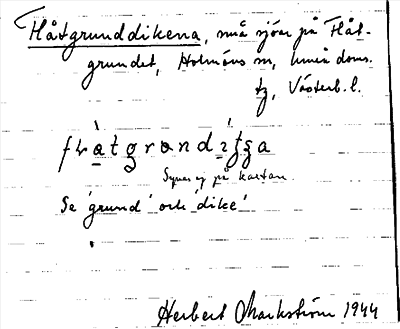 Flåtgrunddikena, små sjöar på Flåt-
grundet, Holmöns sn, Umeå doms.
tg, Västerb. l.
flàtgrondítga
Synes ej på kartan
Se 'grund' och 'dike'
Herbert Markström 1944